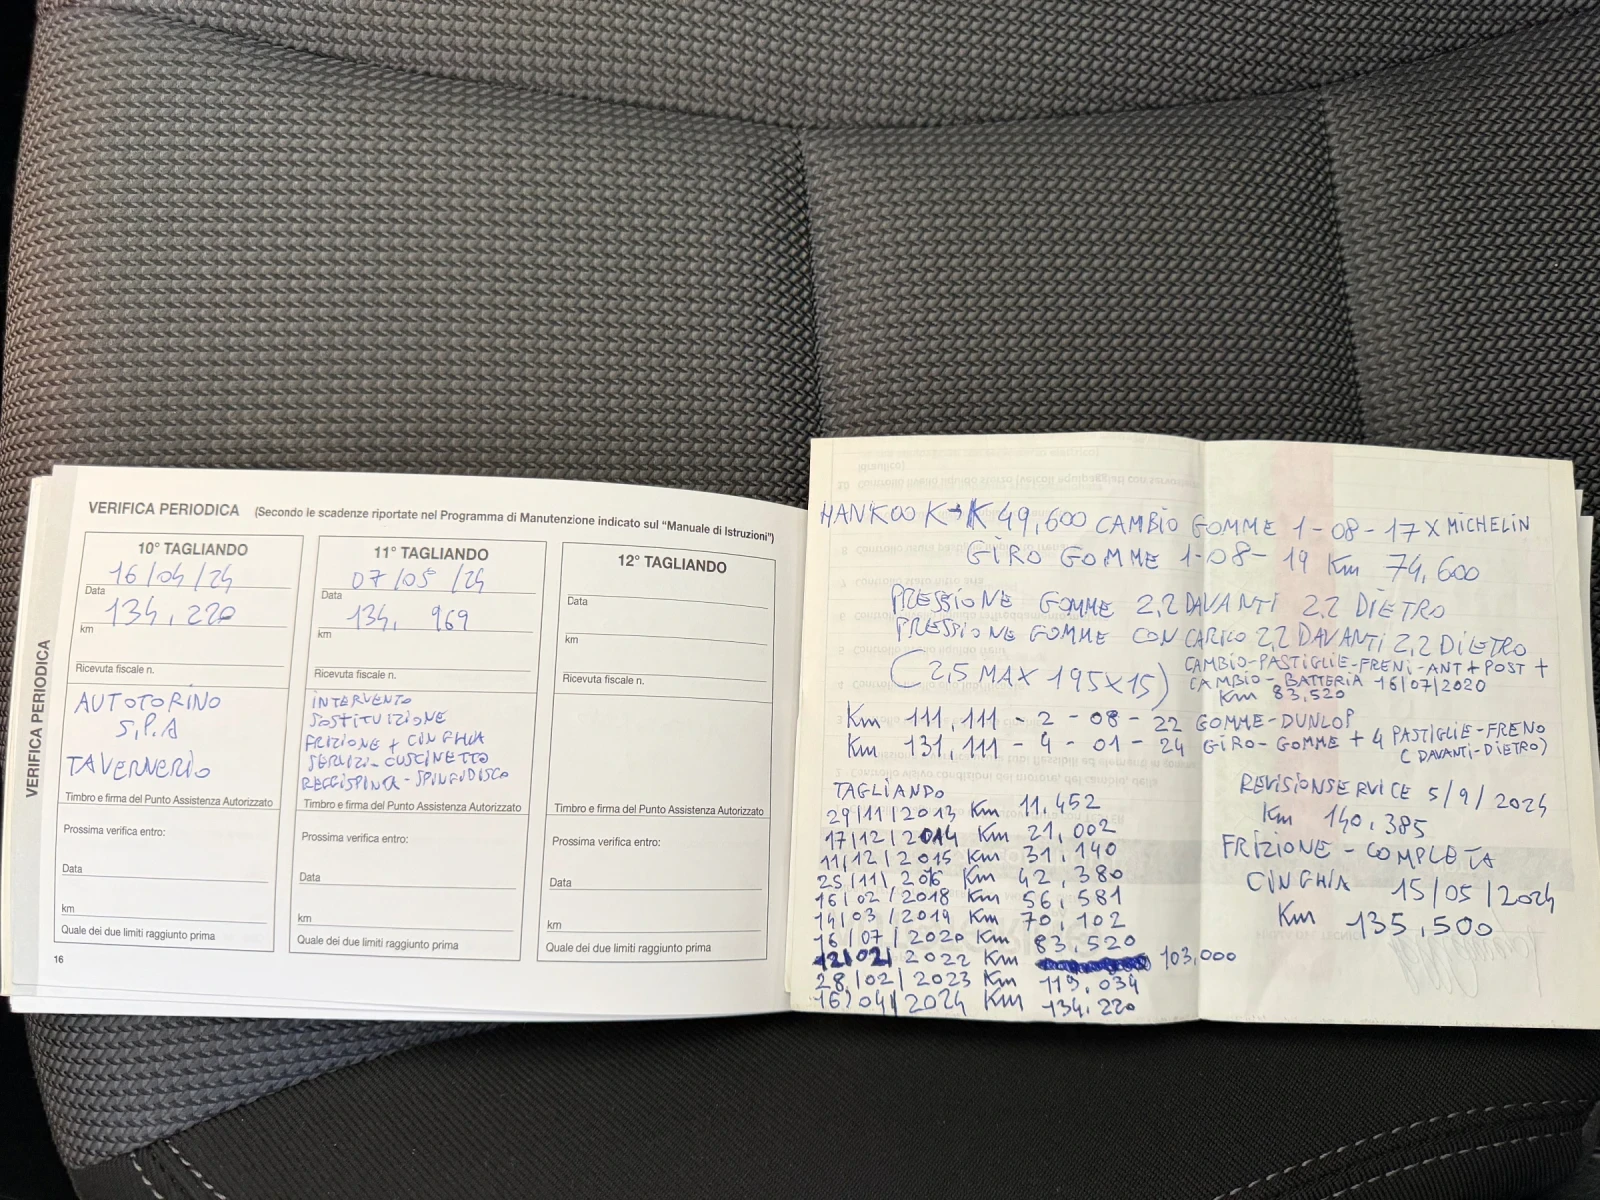 VERIFICA PERIODICA (Secondo le scadenze riportate nel Programma di Manutenzione indicato sul "Manuale di Istruzioni")
VERIFICA PERIODICA
10° TAGLIANDO
16/04/24
Data
134,220
km
Ricevuta fiscale n.
AUTOTORINO
S.P.A
TAVERNERIO
Timbro e firma del Punto Assistenza Autorizzato
Prossima verifica entro:
Data
km
Quale dei due limiti raggiunto prima
16
11° TAGLIANDO
07/05/24
Data
134, 969
km
Ricevuta fiscale n.
INTERVENTO
SOSTITUIZIONE
FRIZIONE + CINGHIA
SERVIZI-CUSCINETTO
REGGISPINTA-SPINGIDISCO
Timbro e firma del Punto Assistenza Autorizzato
Prossima verifica entro:
Data
km
Quale dei due limiti raggiunto prima
12° TAGLIANDO
Data
km
Ricevuta fiscale n.
Timbro e firma del Punto Assistenza Autorizzato
Prossima verifica entro:
Data
km
Quale dei due limiti raggiunto prima
HANKOOK → K 49,600 CAMBIO GOMME 1-08-17 X MICHELIN
GIRO GOMME 1-08-19 Km 74,600
PRESSIONE GOMME 2,2 DAVANTI 2,2 DIETRO
PRESSIONE GOMME CON CARICO 2,2 DAVANTI 2,2 DIETRO
(2,5 MAX 195X15)
CAMBIO-PASTIGLIE-FRENI-ANT+POST+
CAMBIO-BATTERIA 16/07/2020
Km 83,520
Km 111,111 - 2 - 08 - 22 GOMME-DUNLOP
Km 131,111 - 4 - 01 - 24 GIRO-GOMME + 4 PASTIGLIE-FRENO
(DAVANTI-DIETRO)
TAGLIANDO
29/11/2013 Km 11,452
17/12/2014 Km 21,002
11/12/2015 Km 31,140
25/11/2016 Km 42,380
16/02/2018 Km 56,581
14/03/2019 Km 70,102
16/07/2020 Km 83,520
12/02/2022 Km 103,000
28/02/2023 Km 119,034
16/04/2024 Km 134,220
REVISIONSERVICE 5/9/2024
Km 140,385
FRIZIONE-COMPLETA
CINGHIA 15/05/2024
Km 135,500